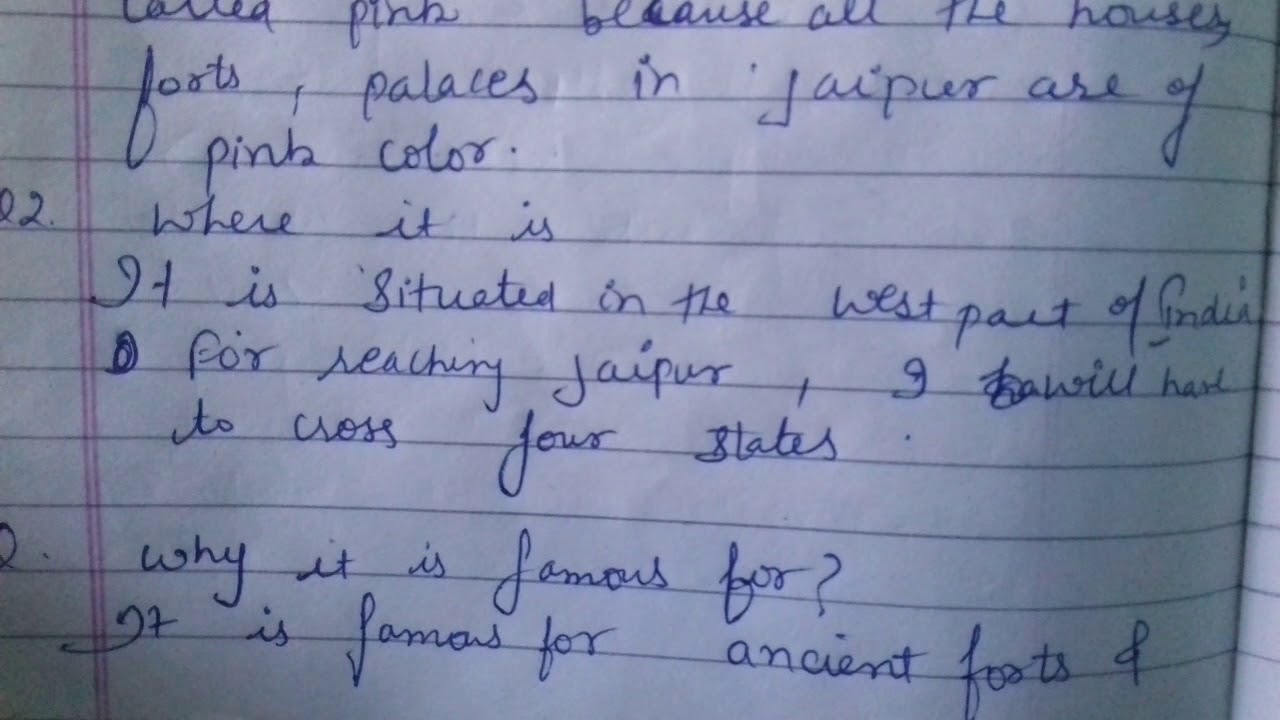 called pink because all the houses,
forts, palaces in Jaipur are of
pink color.
Q2. Where it is
It is situated in the west part of India
For reaching Jaipur, I will have
to cross four states.
Q. Why it is famous for?
It is famous for ancient forts &